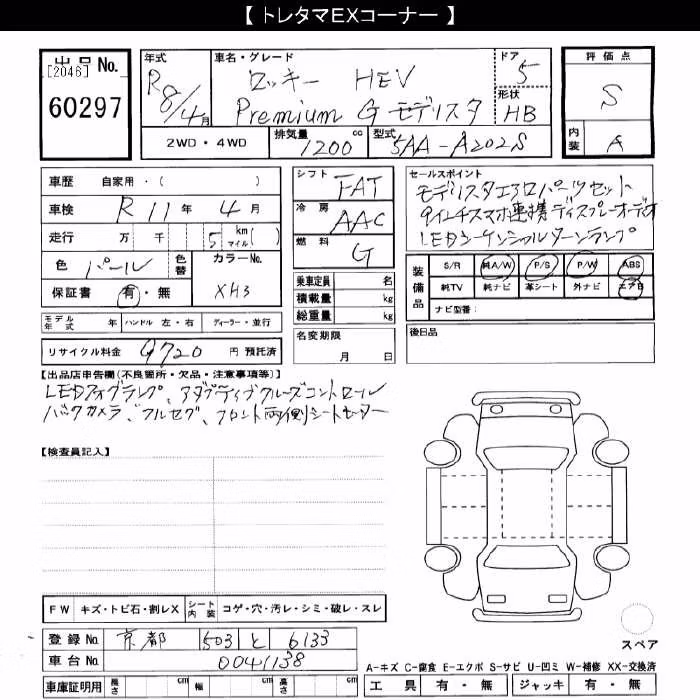 【 トレタマEXコーナー 】
出品 No.
[2046]
60297
年式
R8/4月
車名・グレード
ロッキー HEV
Premium G モデリスタ
ドア
5
形状
HB
評価点
S
内装
A
2WD・4WD
排気量 1200 cc
型式 5AA-A202S
車歴 自家用・( )
車検 R 11年 4月
走行 万 千 5 km マイル( )
色 パール
色替
カラーNo.
XH3
保証書 有・無
モデル年式 年 ハンドル 左・右 ディーラー・並行
リサイクル料金 9720 円 預託済
シフト FAT
冷房 AAC
燃料 G
乗車定員 名
積載量 kg
総重量 kg
名変期限
月 日
セールスポイント
モデリスタエアロパーツセット
9インチスマホ連携ディスプレーオーディオ
LEDシーケンシャルターンランプ
装備品
S/R 純A/W P/S P/W ABS
純TV 純ナビ 革シート 外ナビ エアB
ナビ型番:
後日品
【出品店申告欄(不良箇所・欠品・注意事項等)】
LEDフォグランプ、アダプティブクルーズコントロール
バックカメラ、フルセグ、フロント両側シートヒーター
【検査員記入】
FW キズ・トビ石・割レX シート内装 コゲ・穴・汚レ・シミ・破レ・スレ
登録 No. 京都 503 と 6133
車台 No. 0041138
車庫証明用 長さ cm 幅 cm 高さ cm
スペア
A-キズ C-腐食 E-エクボ S-サビ U-凹ミ W-補修 XX-交換済
工具 有・無 ジャッキ 有・無